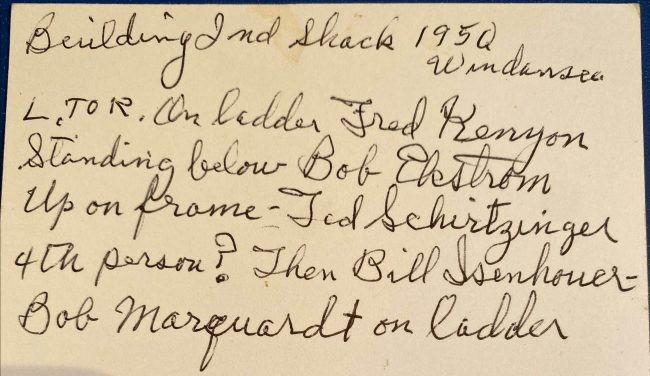 Building 2nd Shack 1950
Windansea
L. TO R. On ladder Fred Kenyon
Standing below Bob Ekstrom
Up on frame - Ted Schirtzinger
4th person? Then Bill Isenhouer-
Bob Marquardt on ladder